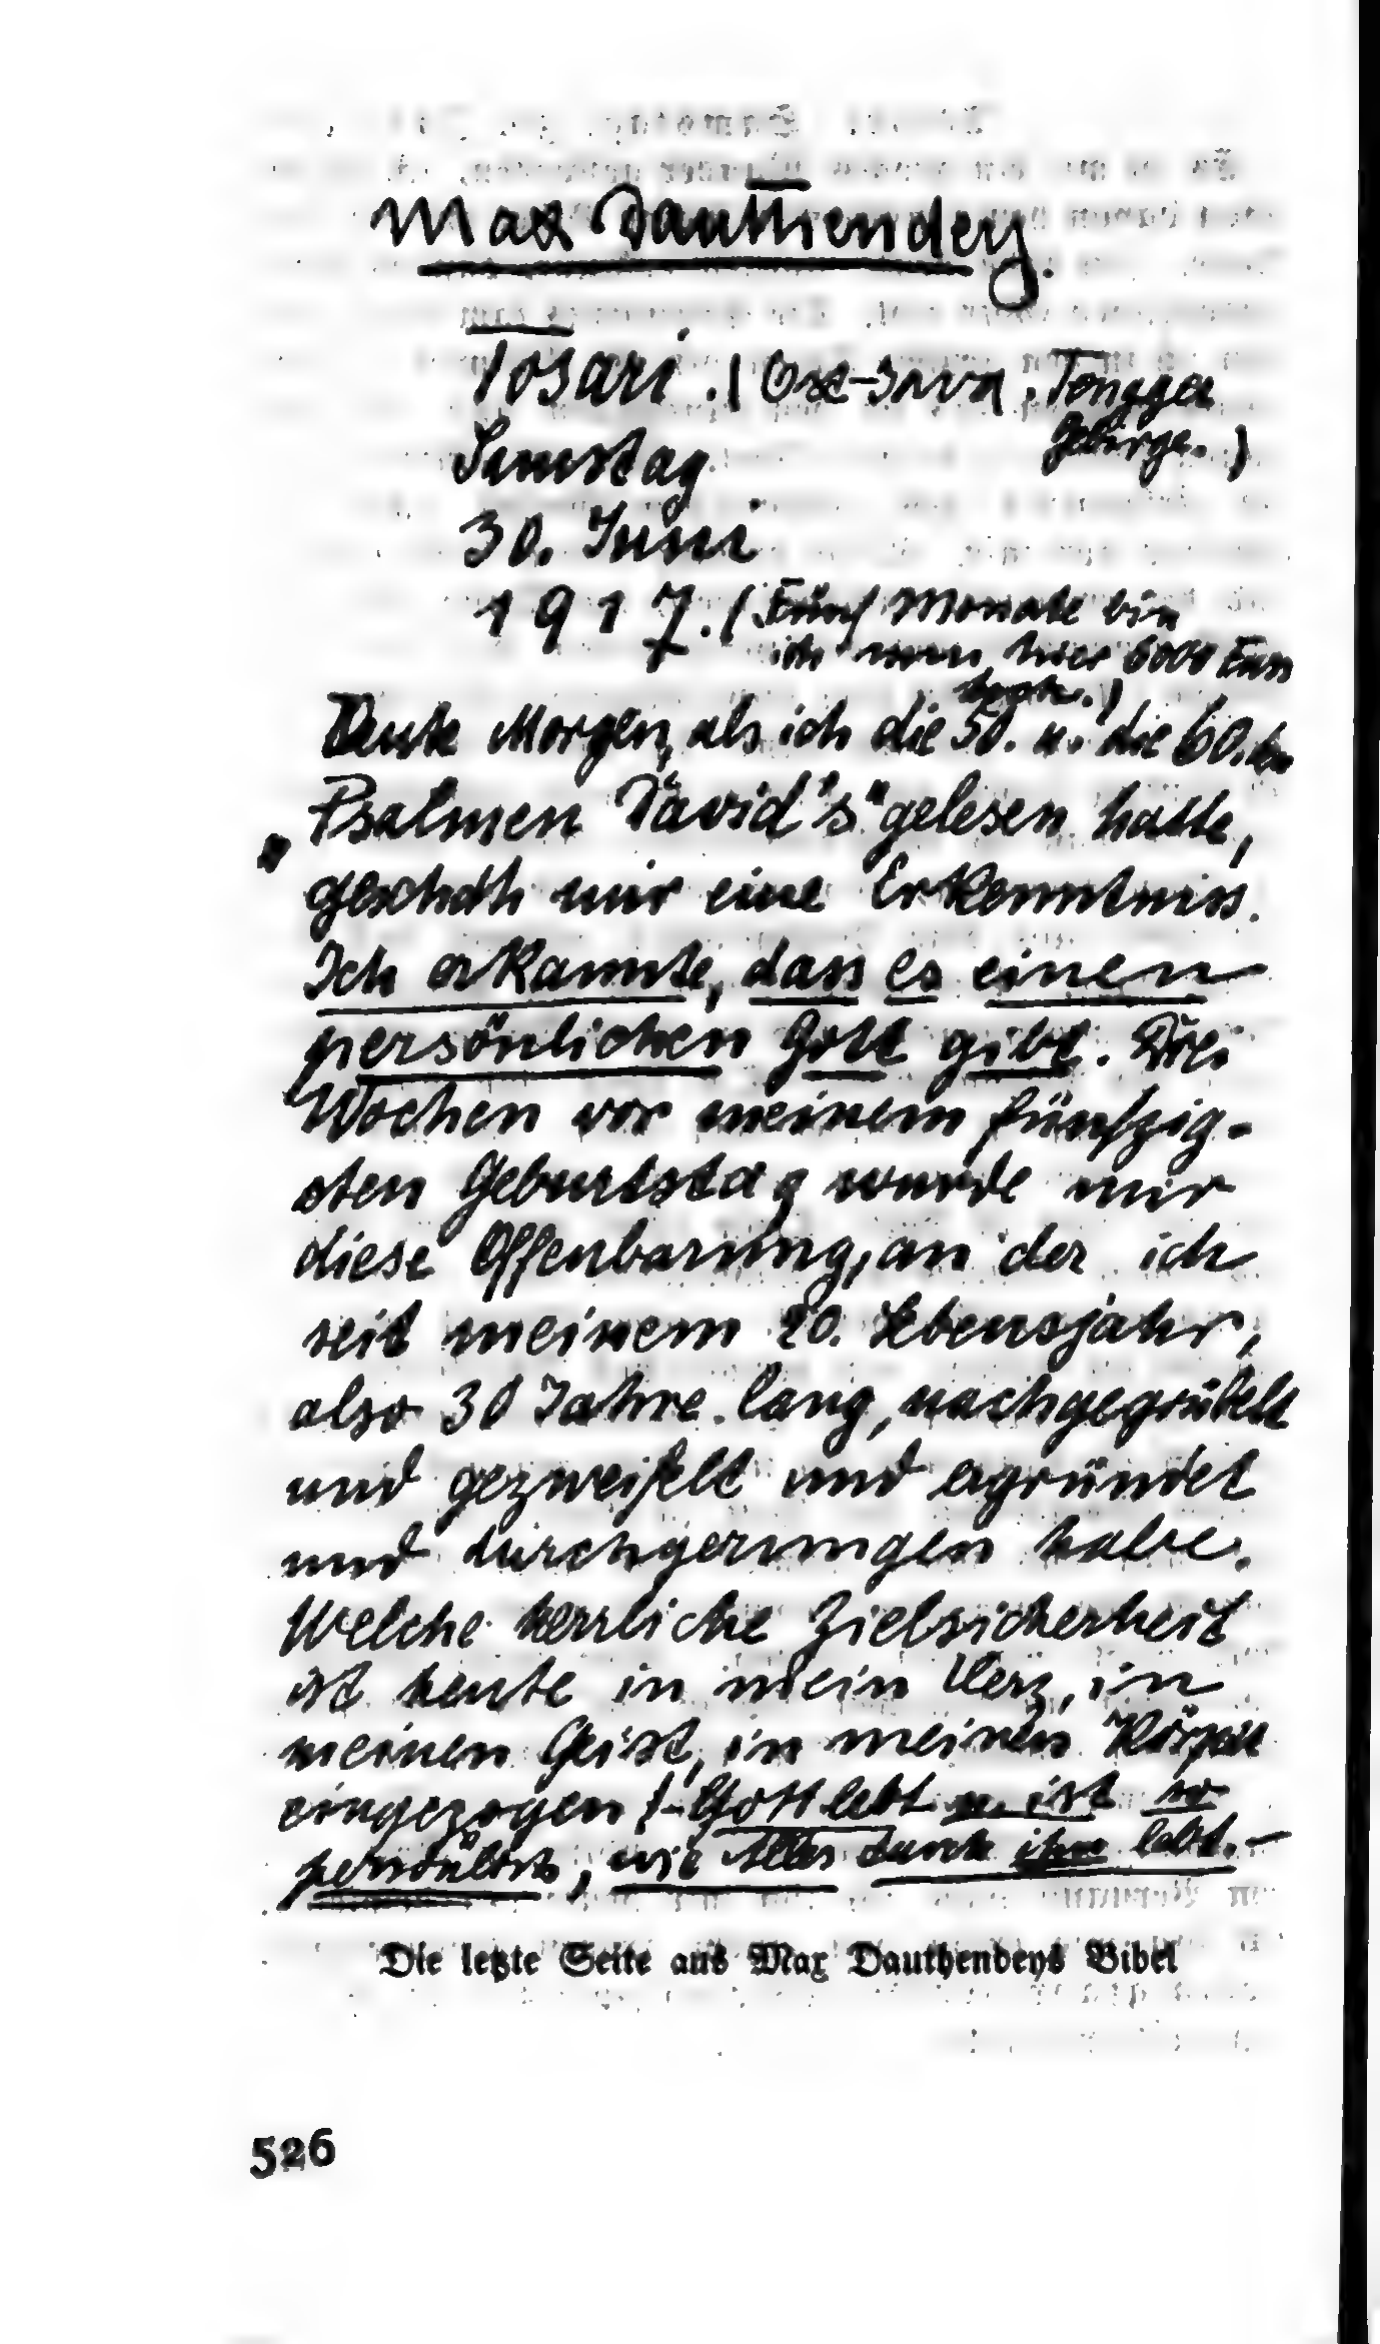 Max Dauthendey.
Tosari. (Ost-Java. Tengger
Gebirge.)
Samstag
30. Juni
1917. (Fünf Monate bin
ich nun hier 6000 Fuss
hoch.)
Heute Morgen, als ich die 50. u. die 60.
„Psalmen David's" gelesen hatte,
geschah mir eine Erkenntniss.
Ich erkannte, dass es einen
persönlichen Gott gibt. Drei
Wochen vor meinem fünfzig-
sten Geburtstag wurde mir
diese Offenbarung, an der ich
seit meinem 20. Lebensjahr,
also 30 Jahre lang, nachgegrübelt
und gezweifelt und ergründet
und durchgerungen habe.
Welche herrliche Zielsicherheit
ist heute in mein Herz, in
meinen Geist, in meinen Körper
eingezogen! – Gott lebt u. ist so
persönlich, wie Alles durch ihn lebt. –
Die letzte Seite aus Max Dauthendeys Bibel
526